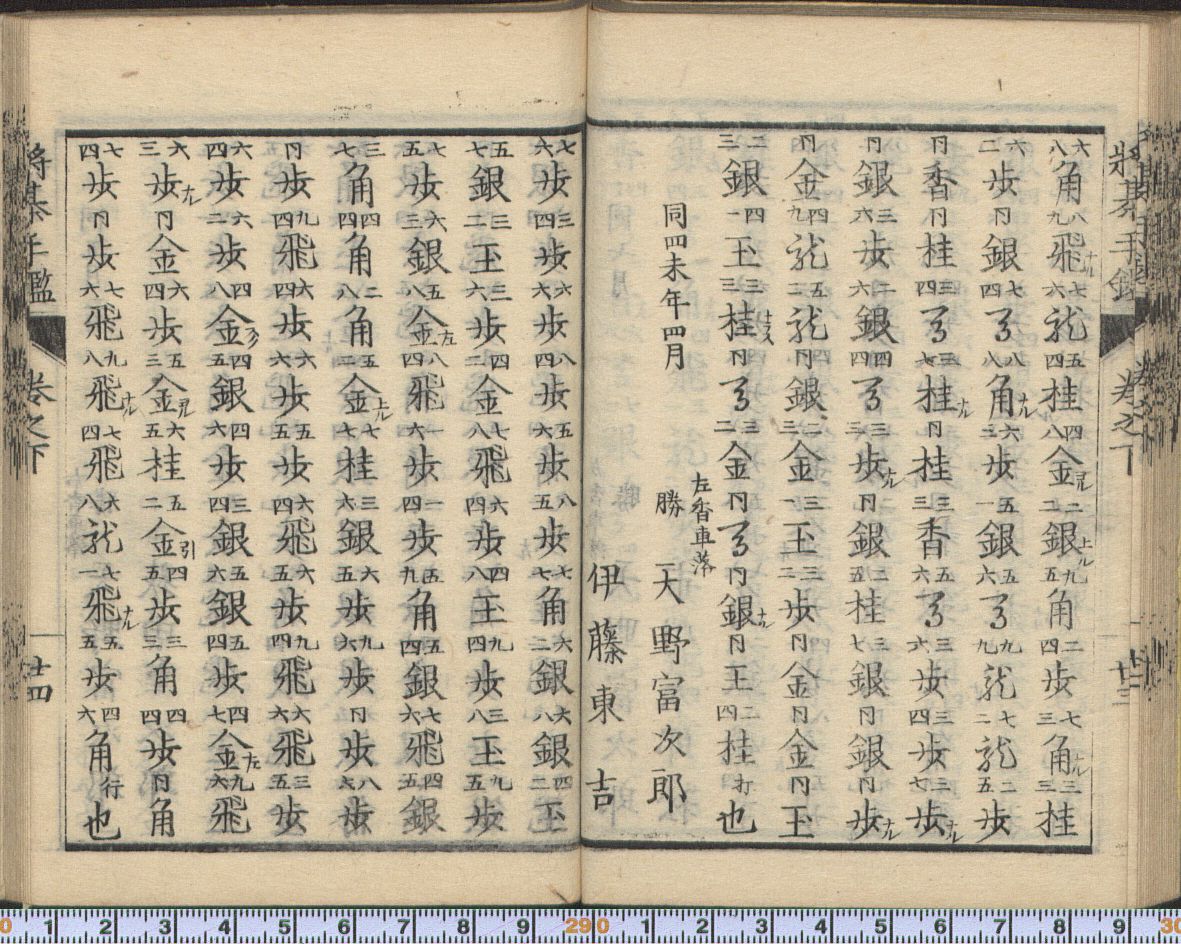 將棊手鑑 卷之下 廿三
六八角 八九飛ナル 七六龍 五四桂 四八金ヨル 二銀上ル 九五角 二四歩 七三角ナル 三三桂
六二歩 同銀 七四馬 八八角ナル 六三歩 五一銀 五六馬 九九龍 七二龍 二五歩
同香 同桂 三四馬 三七桂ナル 同桂 三三香 五六馬 三六歩 三四歩 三七歩ナル
同銀 三六歩 二六銀 四四馬 三三歩ナル 同銀 二五桂 三七銀 同銀 同歩ナル
同金 四九龍 五二龍 同銀 二三金 三一玉 三二歩 同金 同金 同玉
二三銀 四一玉 三三桂 同馬 三二金 同馬 同銀ナル 同王 二四桂打也
同四未年四月
左香車落
勝 天野富次郎
伊藤東吉
七六歩 三四歩 六六歩 八四歩 五六歩 八五歩 七七角 六二銀 六八銀 四二玉
五七銀 三二玉 三六歩 四二金 七八飛 六四歩 四八王 九四歩 三八王 九五歩
七五歩 六三銀 五八金左 八四飛 一六歩 一四歩 五九角 五四銀 七六飛 四五銀
三七角 四四角 二八角 五二金上ル 七七桂 三六銀 六五歩 九六歩 同歩 八七歩
同歩 九四飛 六四歩 六六歩 五五歩 六四飛 六五歩 九四飛 六六飛 三五歩
六四歩 六二歩 四八金 四五銀 四六歩 三四銀 五六銀 五四歩 四七金左 九六飛
六三歩ナル 同金 六四歩 五三金引 六五桂 五二金引 四五歩 三三角 四四歩 同角
七四歩 同歩 七六飛 九八飛ナル 七四飛 六八龍 七一飛ナル 五五歩 四六角行也
將棊手鑑 卷之下 廿四